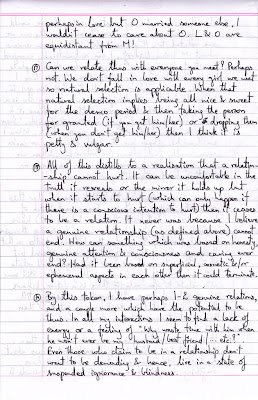 perhaps in love but O married someone else, I
wouldn't cease to care about O. L & O are
equidistant from M!
Can we relate thus with everyone you meet? Perhaps
not. We don't fall in love with every girl we meet
so natural selection is applicable. When that
natural selection implies being all nice & sweet
for the demo period & then taking the person
for granted (if you get him/her) or dropping them
(when you don't get him/her) then I think it is
petty & vulgar.
All of this distills to a realisation that a relation-
-ship cannot hurt. It can be uncomfortable in the
truth it reveals or the mirror it holds up but
when it starts to hurt (which can only happen if
there is a conscious intention to hurt) then it ceases
to be a relation. It never was because I believe
a genuine relationship (as defined above) cannot
end. How can something which was based on honesty,
genuine attention & consciousness and caring ever
end? Had it been based on superficial, cosmetic &/or
ephemeral aspects in each other then it could terminate.
By this token, I have perhaps 1-2 genuine relations,
and a couple more which have the potential to be
thus. In all my interactions I seem to find a lack of
energy or a feeling of "Why waste time with him when
he won't ever be my husband/best friend/... etc?"
Even those who claim to be in a relationship don't
want to be demanding & hence, live in a state of
suspended ignorance & blindness.